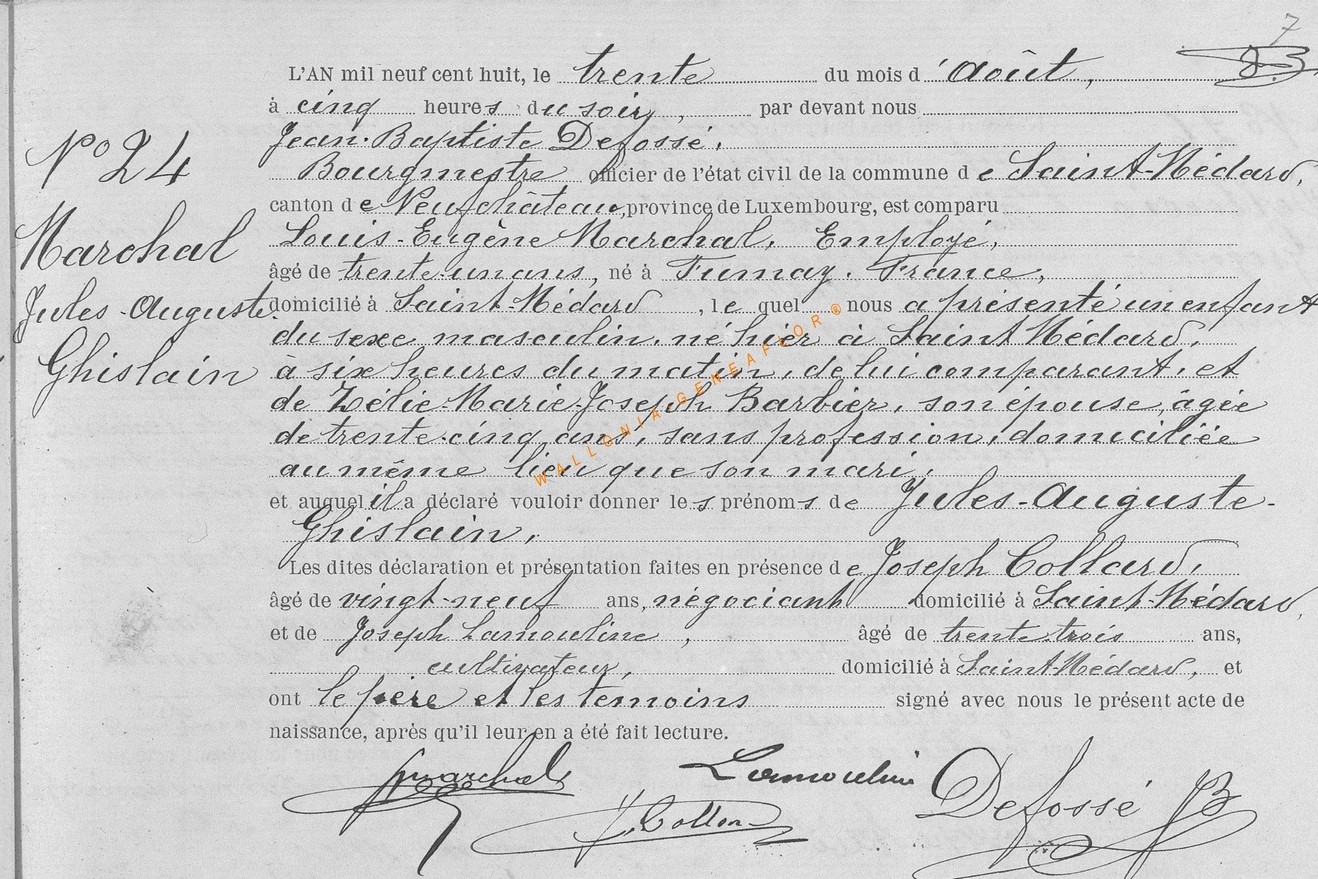 7
L'AN mil neuf cent huit, le trente du mois d'Août,
à cinq heures du soir, par devant nous
Jean-Baptiste Defossé,
Bourgmestre officier de l'état civil de la commune de Saint-Médard,
canton de Neufchâteau, province de Luxembourg, est comparu
Louis-Eugène Marchal, Employé,
âgé de trente un ans, né à Fumay. France,
domicilié à Saint-Médard, lequel nous a présenté un enfant
du sexe masculin, né hier à Saint Médard,
à six heures du matin, de lui comparant, et
de Zélie-Marie-Joseph Barbier, son épouse, âgée
de trente-cinq ans, sans profession, domiciliée
au même lieu que son mari,
et auquel il a déclaré vouloir donner les prénoms de Jules-Auguste-
Ghislain,
Les dites déclaration et présentation faites en présence de Joseph Collard,
âgé de vingt-neuf ans, négociant domicilié à Saint-Médard,
et de Joseph Lamouline, âgé de trente trois ans,
cultivateur, domicilié à Saint-Médard, et
ont le père et les temoins signé avec nous le présent acte de
naissance, après qu'il leur en a été fait lecture.
Marchal Lamouline Defossé JB
J. Collard
N° 24
Marchal
Jules-Auguste
Ghislain
WALLONIA GENEAFLOR ®